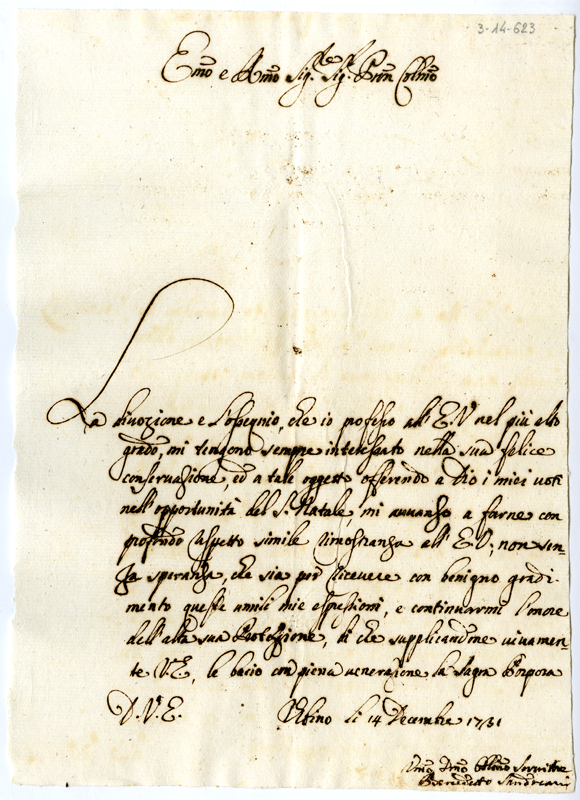 3-14-623
Emo e Rmo Sig.r Sig.r Pron Colmo
La divozione e l'ossequio, che io professo all'E.V. nel più alto
grado, mi tengono sempre interessato nella sua felice
conservazione, ed a tale oggetto offerendo a Dio i miei voti
nell'opportunità del S. Natale, mi avvanzo a farne con
profondo rispetto simile rimostranza all'E.V., non sen=
za speranza, che sia per ricevere con benigno gradi-
mento queste umili mie espressioni, e continuarmi l'onore
dell'alta sua Protezzione, di che supplicandone vivamen=
te V.E., le bacio con piena venerazione la Sagra Porpora
D. V.ra E. li 14 Decembre 1731
Umo Dmo Obblmo Servitore
Benedetto